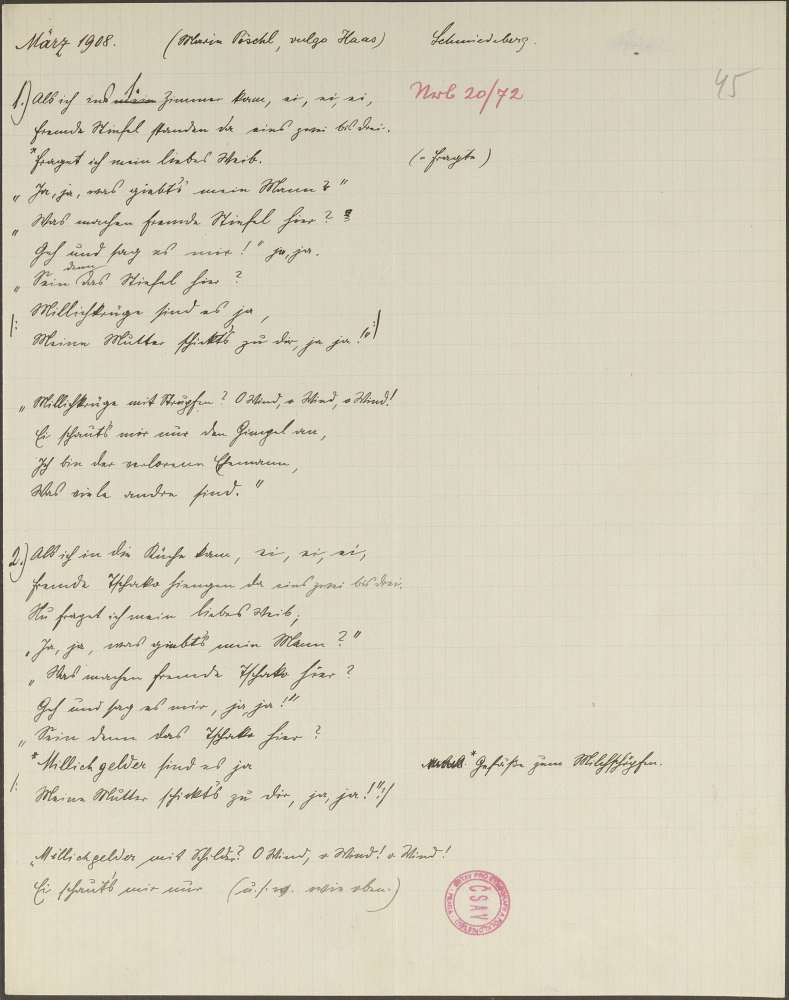 März 1908. (Maria Pöschl, vulgo Haas) Schmiedeberg.
45
Nrb 20/72
1.) Als ich ins mein Zimmer kam, ei, ei, ei,
Fremde Stiefel standen da eins zwei bis drei.
*Fraget ich mein liebes Weib. (= fragte)
„Ja, ja, was giebt's mein Mann?"
„Was machen fremde Stiefel hier?
Geh und sag es mir!" ja, ja.
„Sein denn das Stiefel hier?
Millichkrüge sind es ja,
|: Meine Mutter schickt's zu dir, ja ja!" :|
„Millichkrüge mit Strupfen? O Wind, o Wind, o Wind!
Ei schaut's mir nur den Gimpel an,
Ich bin der verlorene Ehemann,
Was viele andre sind."
2.) Als ich in die Küche kam, ei, ei, ei,
Fremde Tschako hiengen da eins zwei bis drei.
Nu fraget ich mein liebes Weib;
„Ja, ja, was giebt's mein Mann?"
„Was machen fremde Tschako hier?
Geh und sag es mir, ja, ja!"
„Sein denn das Tschako hier?
*Millichgelder sind es ja * Gefäße zum Milchschöpfen.
|: Meine Mutter schickt's zu dir, ja, ja!" :|
„Millichgelder mit Schilder? O Wind, o Wind! o Wind!
Ei schaut's mir nur (u.s.w. wie oben.)
ČSAV